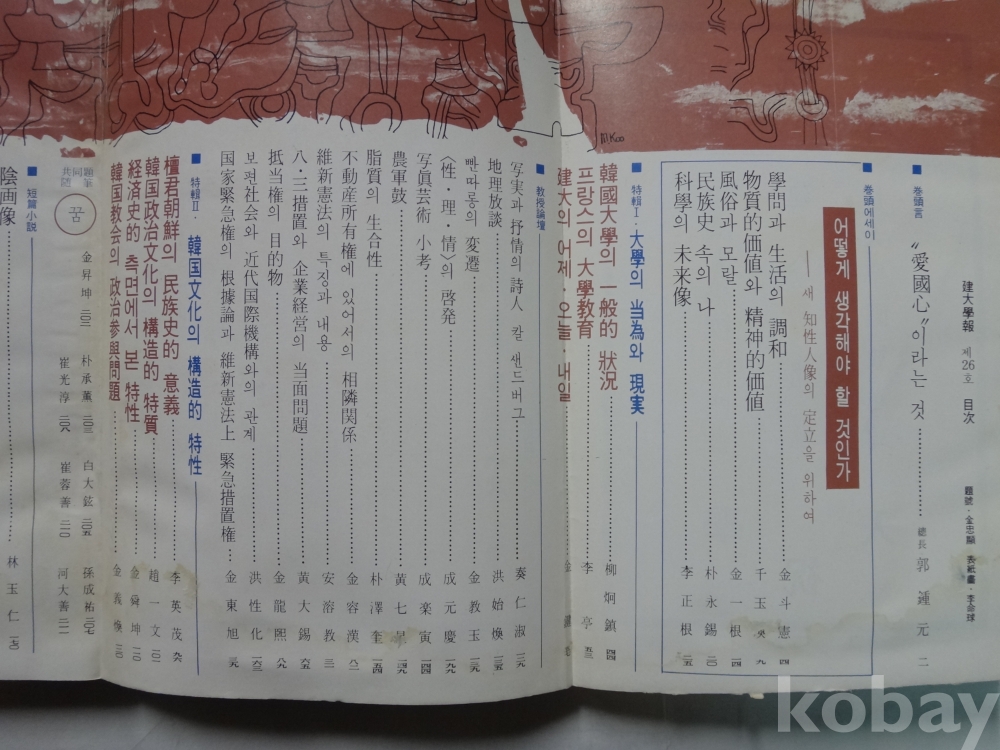 建大學報 제26호 目次
題號·金忠顯 表紙畵·李命球
■ 巻頭言
"愛國心"이라는 것 總長 郭鍾元 二
■ 巻頭에세이
어떻게 생각해야 할 것인가
── 새 知性人像의 定立을 위하여
學問과 生活의 調和 金斗憲 四
物質的価値와 精神的価値 千玉 九
風俗과 모랄 金一根 一四
民族史 속의 나 朴永錫 二〇
科學의 未来像 李正根 二五
■ 特輯Ⅰ·大學의 当為와 現実
韓國大學의 一般的 狀況 柳炯鎮 四四
프랑스의 大學教育 李亭 五三
建大의 어제·오늘·내일 金
■ 教授論壇
写実과 抒情의 詩人 칼 샌드버그 奏仁淑 一三九
地理放談 洪始煥 一三五
빤따롱의 変遷 金教玉 一元
〈性·理·情〉의 啓発 成元慶 一九
写眞芸術 小考 成楽寅 一四
農軍鼓 黄七星 一四九
脂質의 生合性 朴澤奎 一四
不動産所有権에 있어서의 相隣関係 金容漢 八二
維新憲法의 특징과 内容 安溶教 三一
八·三措置와 企業経営의 当面問題 黄大錫
抵当権의 目的物 金龍熙 八九
보편社会와 近代国際機構와의 관계 洪性化 一六三
国家緊急権의 根據論과 維新憲法上 緊急措置権 金東旭 三九
■ 特輯Ⅱ· 韓国文化의 構造的 特性
檀君朝鮮의 民族史的 意義 李英茂 九六
韓国政治文化의 構造的 特質 趙一文 一〇一
経済史的 측면에서 본 特性 金舜坤 一一〇
韓国教会의 政治参與問題 金義煥 一二〇
共同題 隨筆
꿈
金昇坤 二〇二 朴承薫 二〇三 白大鉉 二〇五 孫成祐 二〇七
崔光淳 二〇八 崔蓉善 二一〇 河大善 二一一
■ 短篇小説
陰画像 林玉仁
KOO
kobay